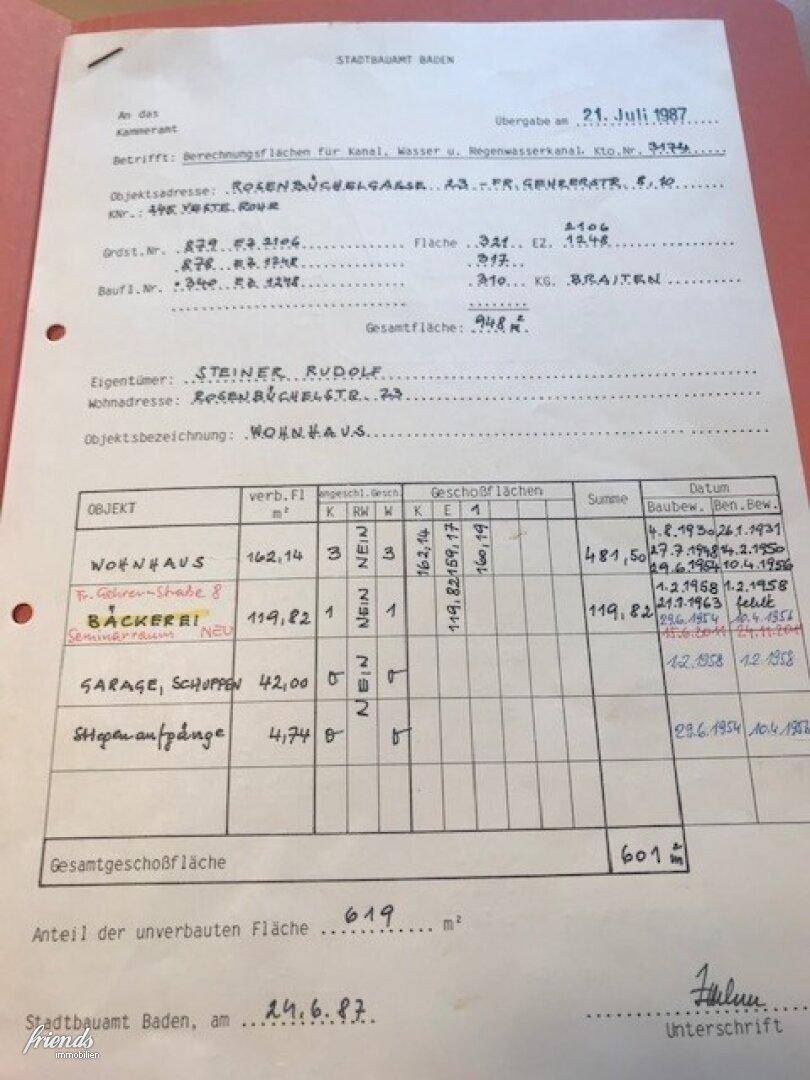 STADTBAUAMT BADEN
An das
Kammeramt
Übergabe am 21. Juli 1987
Betrifft: Berechnungsflächen für Kanal, Wasser u. Regenwasserkanal. Kto.Nr. 3174
Objektsadresse: ROSENBÜCHELGASSE 23 - FR. GEHRERSTR. 8, 10
KNr.:
Grdst.Nr. 879 EZ. 2106 Fläche 321 EZ. 2106 1248
878 EZ. 1248 317
Baufl.Nr. .340 EZ. 1248 310 KG. BRAITEN
Gesamtfläche: 948 m²
Eigentümer: STEINER RUDOLF
Wohnadresse: ROSENBÜCHELSTR. 23
Objektsbezeichnung: WOHNHAUS
OBJEKT verb.Fl m² angeschl.Gesch. Geschoßflächen Summe Datum
K RW W K E 1 Baubew. Ben.Bew.
WOHNHAUS 162,14 3 NEIN 3 162,14 159,17 160,19 481,50 4.8.1930 26.1.1931
27.7.1948 14.2.1950
29.6.1954 10.4.1956
Fr. Gehrer-Straße 8
BÄCKEREI 119,82 1 NEIN 1 119,82 119,82 1.2.1958 1.2.1958
Seminarraum NEU 21.7.1963 fehlt
29.6.1954 10.4.1956
15.6.2011 24.11.2011
GARAGE, SCHUPPEN 42,00 0 NEIN 0 1.2.1958 1.2.1958
Stiegenaufgänge 4,74 0 0 29.6.1954 10.4.1956
Gesamtgeschoßfläche 601 m²
Anteil der unverbauten Fläche 619 m²
Stadtbauamt Baden, am 24.6.87
Unterschrift
friends
immobilien